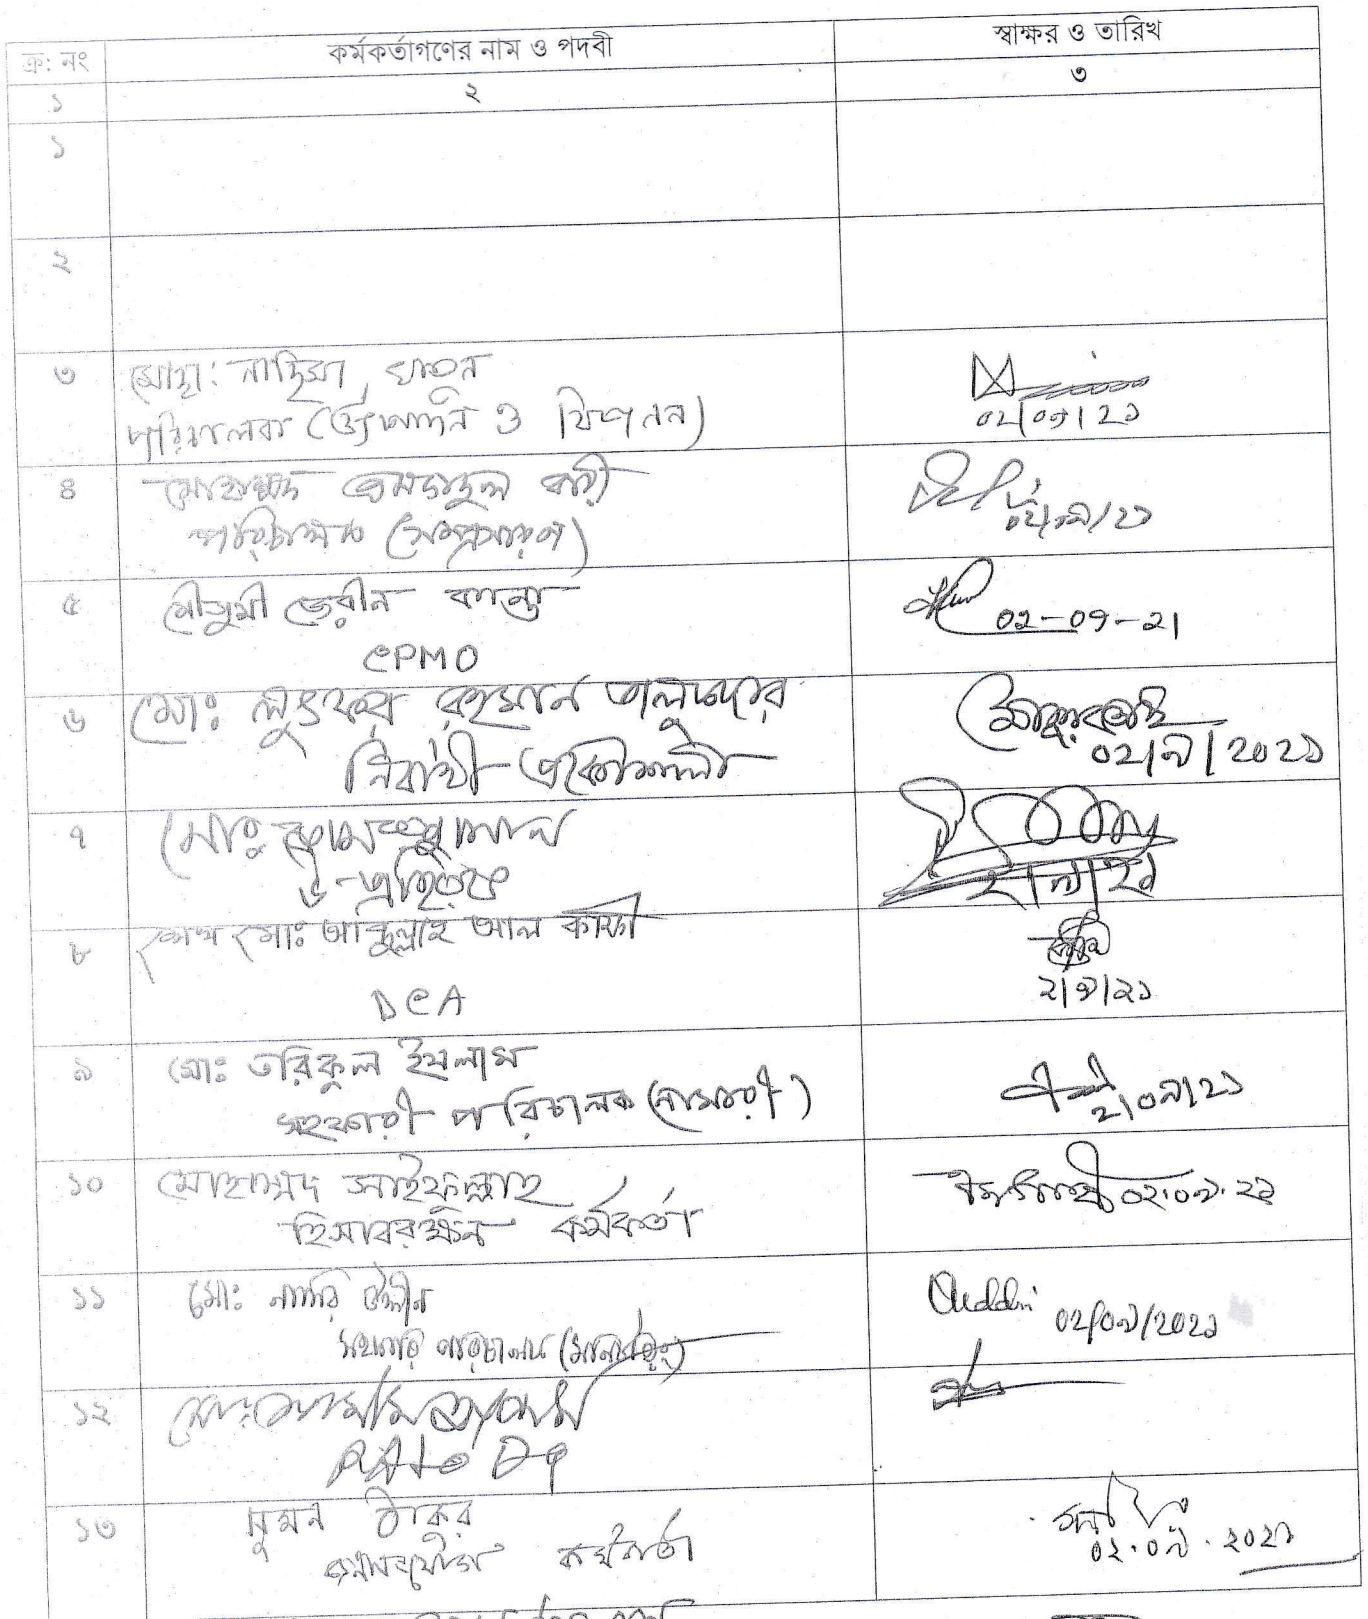 ক্র: নং কর্মকর্তাগণের নাম ও পদবী স্বাক্ষর ও তারিখ
১ ২ ৩
১
২
৩ মোছা: নাছিমা খাতুন
পরিচালক ( ও বিপনন) 02/09/21
৪ মোহাম্মদ এমদাদুল বারী
পরিচালক (সম্প্রসারণ) 02/09/21
৫ মৌসুমী জেরীন কান্তা
CPMO 02-09-21
৬ মোঃ লুৎফর রহমান তালুকদার
নির্বাহী প্রকৌশলী 02/৯/2021
৭ মোঃ
২/৯/২১
৮ শেখ মোঃ আব্দুল্লাহ আল কাফী
DCA ২/৯/২১
৯ মোঃ তরিকুল ইসলাম
সহকারী পরিচালক (নার্সারী) ২/০৯/২১
১০ মোহাম্মদ সাইফুল্লাহ
হিসাবরক্ষন কর্মকর্তা ০২.০৯.২১
১১ মোঃ নাসির উদ্দীন Uddin 02/09/2021
সহকারি পরিচালক
১২
১৩ সুমন ঠাকুর
জনসংযোগ কর্মকর্তা ০২.০৯.২০২১